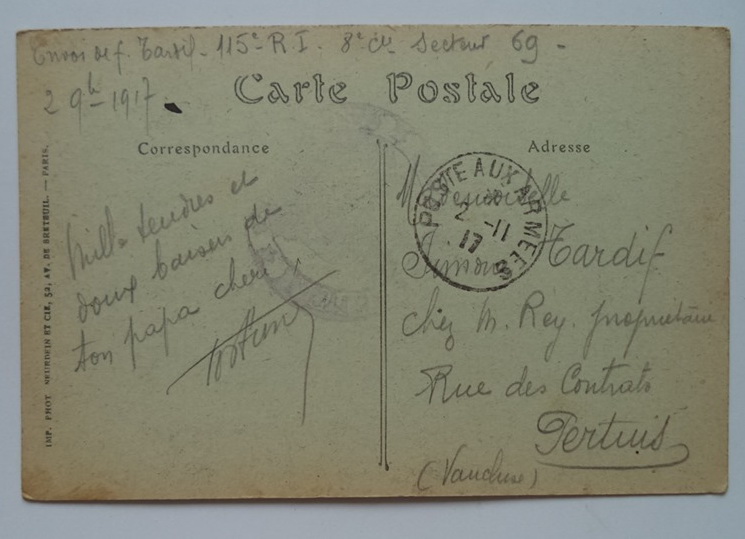 Envoi de f. Tardif - 115e R. I. 8e Cie Secteur 69 -
2 9b 1917
Carte Postale
Correspondance
Adresse
Mille tendres et
doux baisers de
ton papa cheri
POSTE AUX ARMEES
2 -11
17
Mademoiselle
Simone Tardif
chez M. Rey. propriétaire
Rue des Contrats
Pertuis
(Vaucluse)
IMP. PHOT NEURDEIN ET CIE, 52, AV. DE BRETEUIL. — PARIS.